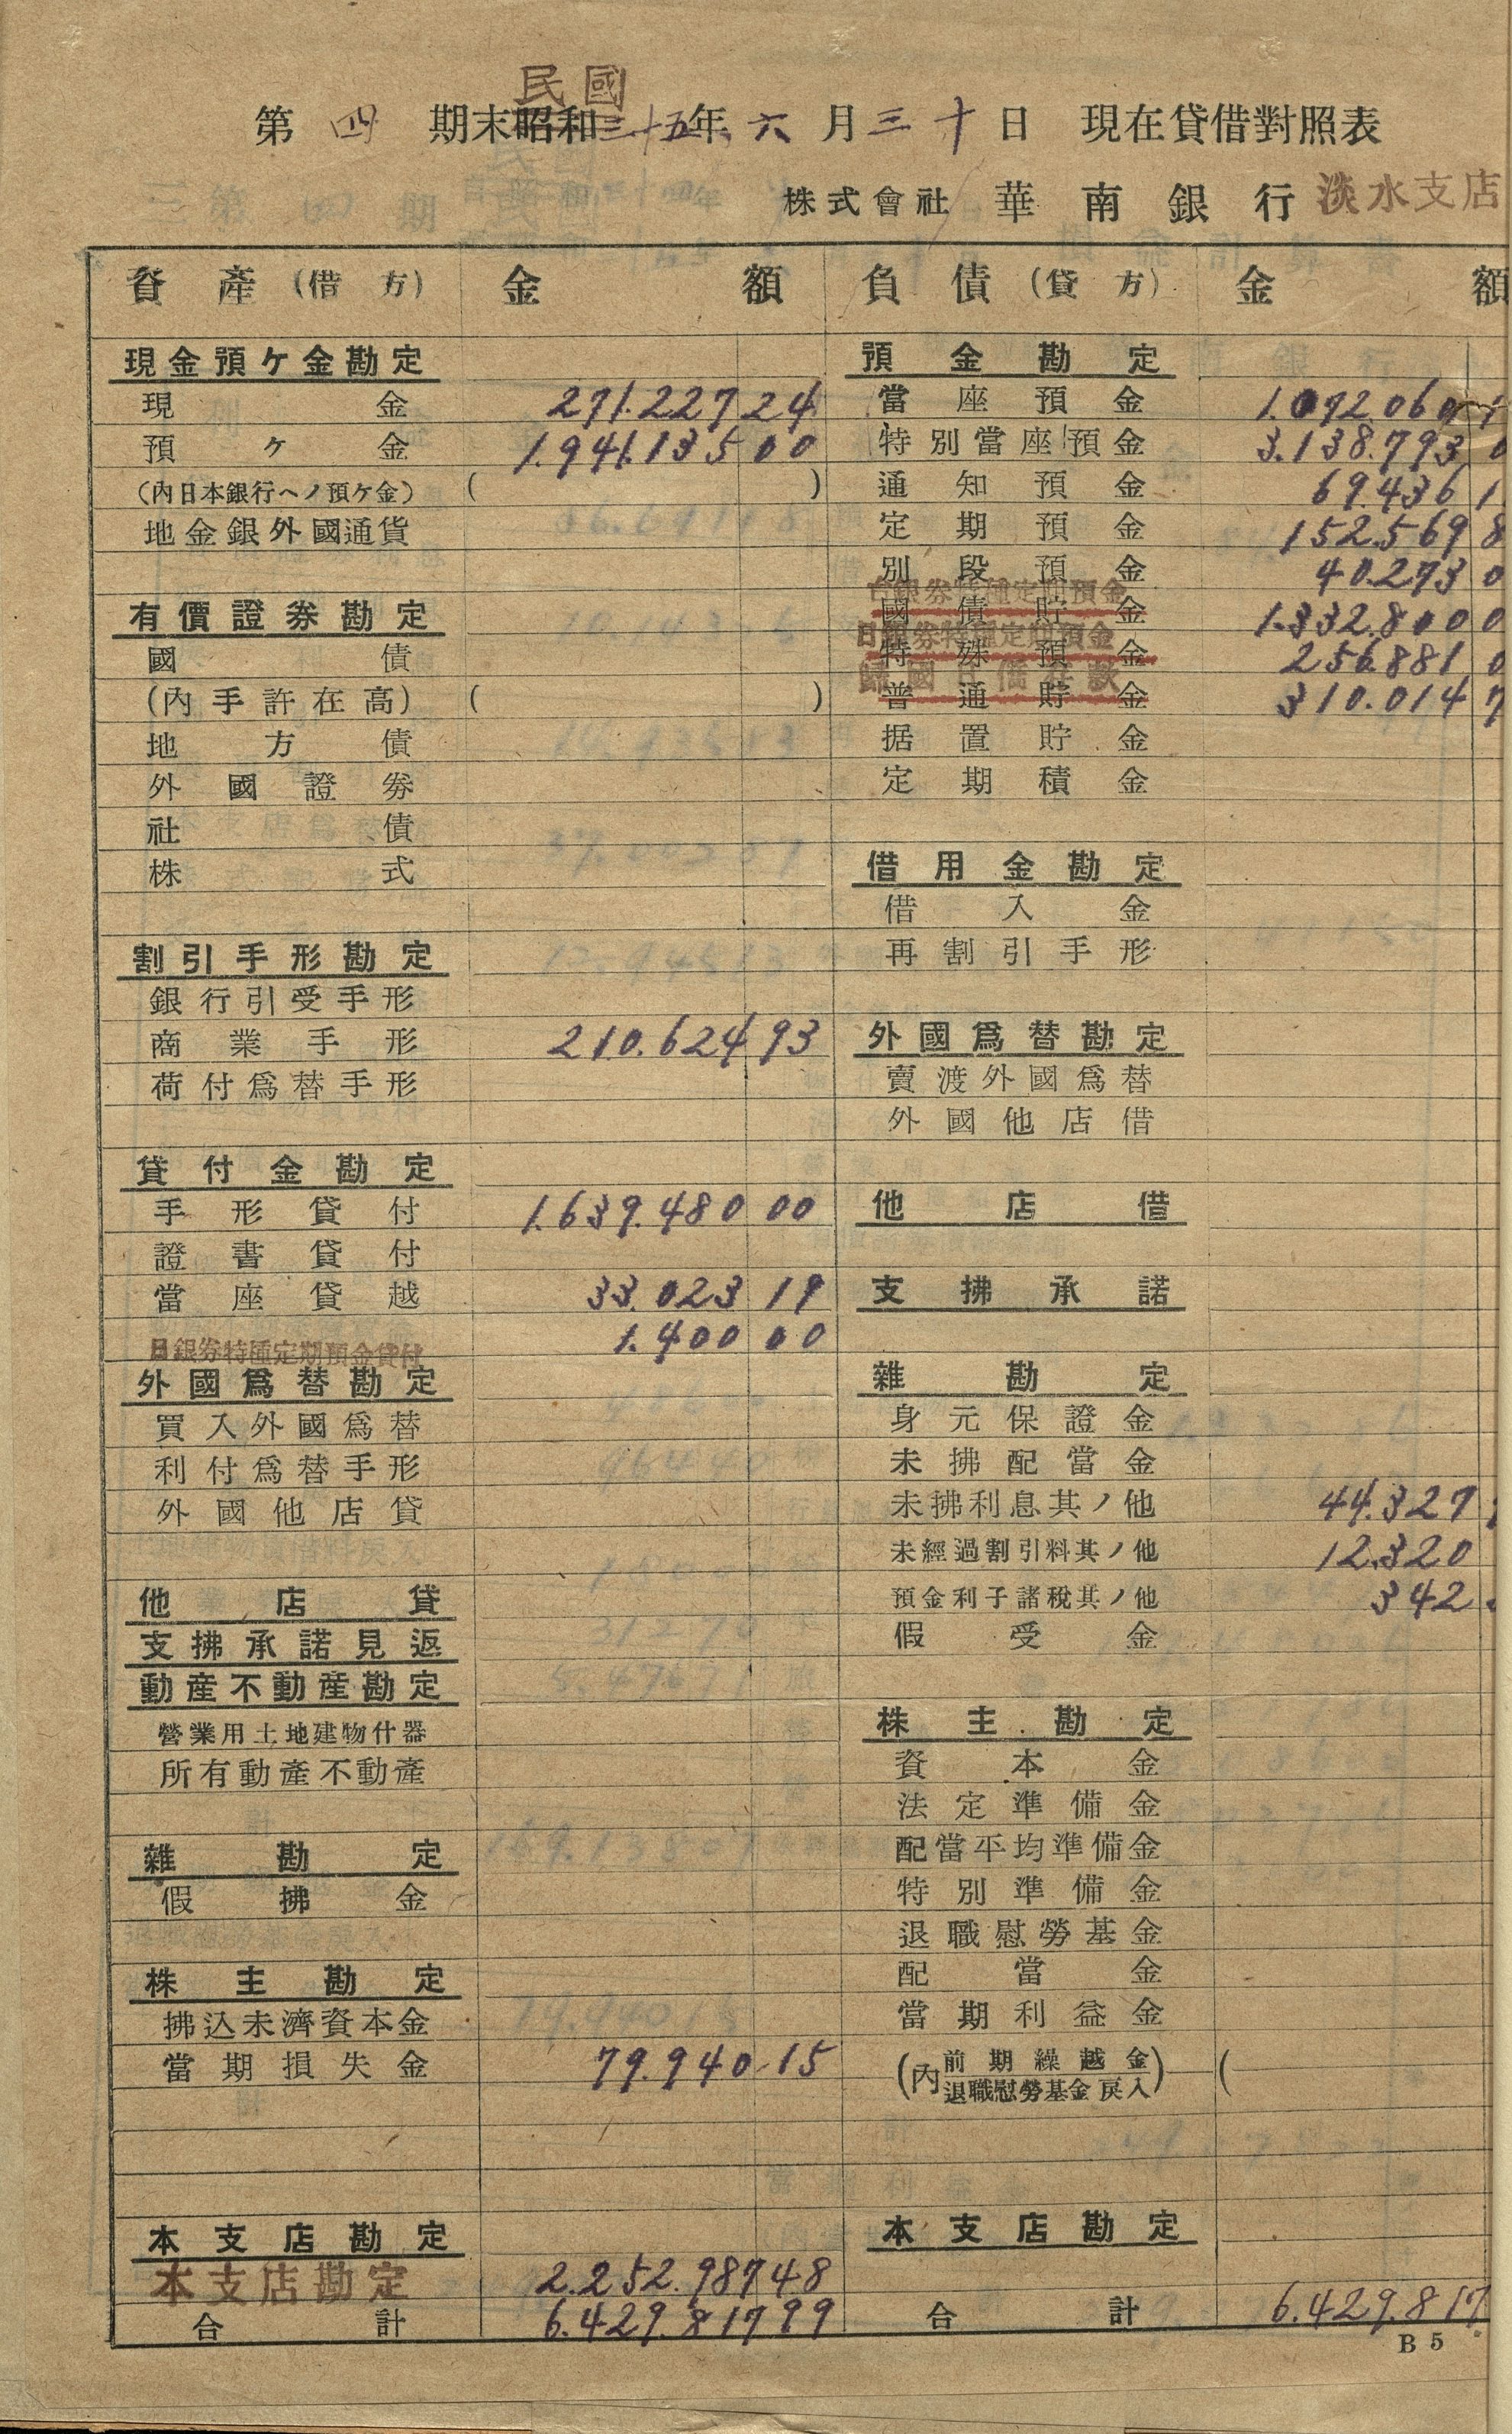 民國
第 四 期末昭和三十五年 六 月 三十 日 現在貸借對照表
株式會社 華南銀行 淡水支店
資產(借方) 金額 負債(貸方) 金額
現金預ケ金勘定 預金勘定
現金 271.227 24 當座預金 1.092.060
預ケ金 1.941.135 00 特別當座預金 3.138.793 0
(內日本銀行ヘノ預ケ金) ( ) 通知預金 69.436 1
地金銀外國通貨 定期預金 152.569 8
別段預金 40.273 0
台銀券特種定期預金
有價證券勘定 國債貯金 1.332.800 0
日銀券特種定期預金
國債 特殊預金 256.881 0
歸國日僑存款
(內手許在高) ( ) 普通貯金 310.014 7
地方債 据置貯金
外國證券 定期積金
社債
株式 借用金勘定
借入金
割引手形勘定 再割引手形
銀行引受手形
商業手形 210.624 93 外國爲替勘定
荷付爲替手形 賣渡外國爲替
外國他店借
貸付金勘定
手形貸付 1.639.480 00 他店借
證書貸付
當座貸越 33.023 19 支拂承諾
日銀券特種定期預金貸付 1.400 00
外國爲替勘定 雜勘定
買入外國爲替 身元保證金
利付爲替手形 未拂配當金
外國他店貸 未拂利息其ノ他 44.327
未經過割引料其ノ他 12.320
他店貸 預金利子諸稅其ノ他 342
支拂承諾見返 假受金
動產不動產勘定
營業用土地建物什器 株主勘定
所有動產不動產 資本金
法定準備金
雜勘定 配當平均準備金
假拂金 特別準備金
退職慰勞基金
株主勘定 配當金
拂込未濟資本金 當期利益金
當期損失金 79.940 15 (內 前期繰越金 退職慰勞基金戾入) (
本支店勘定 本支店勘定
本支店勘定 2.252.987 48
合計 6.429.817 99 合計 6.429.817
B 5